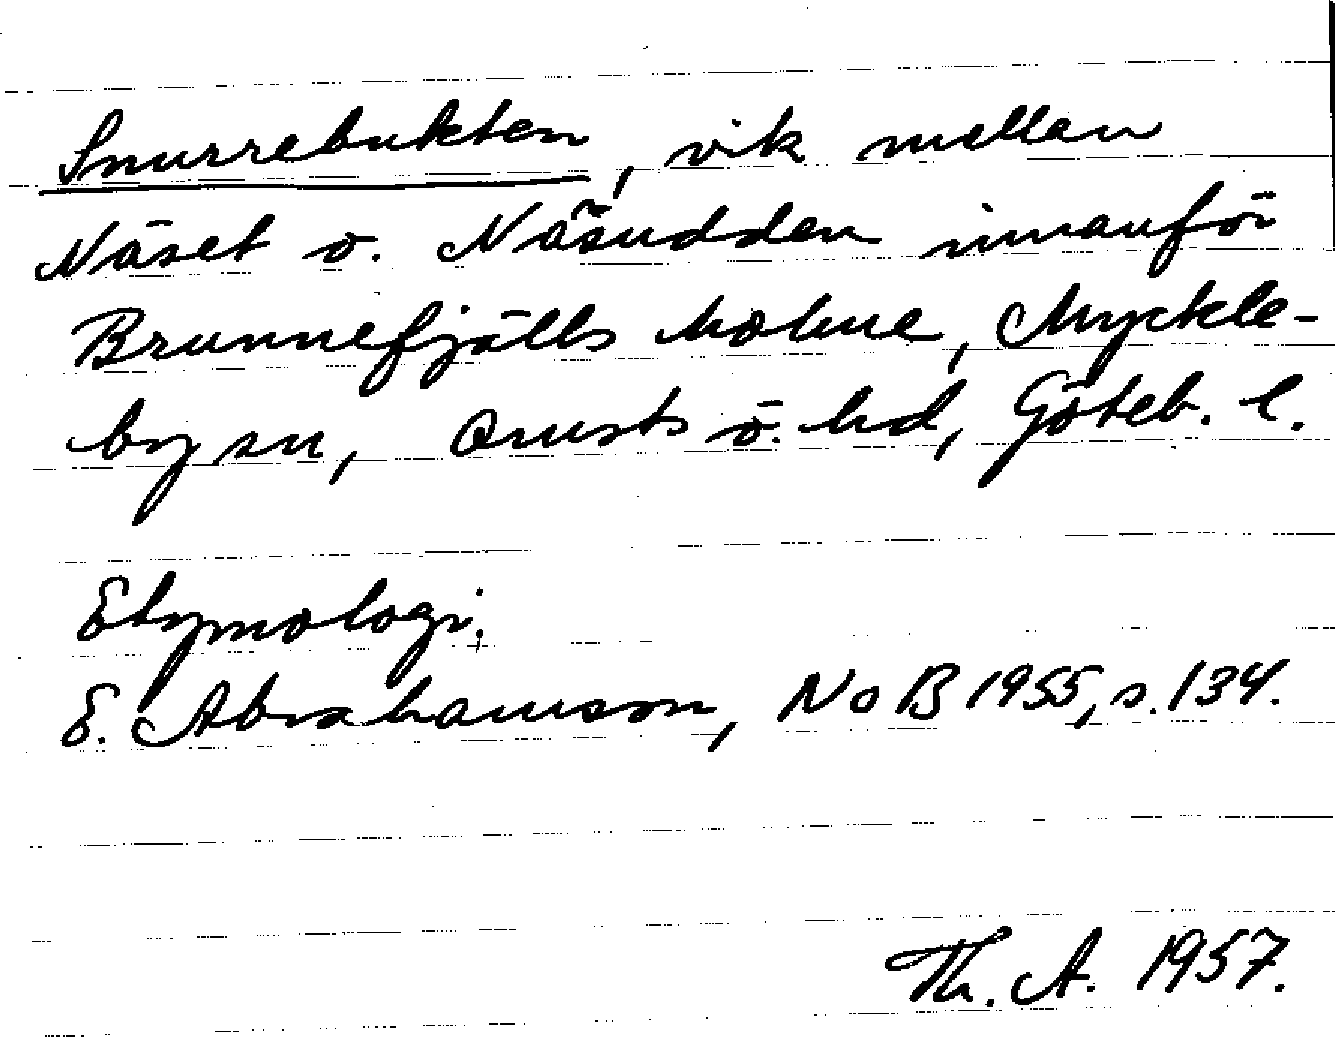 Snurrebukten, vik mellan
Näset o. Näsudden innanför
Brunnefjälls holme, Myckle-
by sn, Orusts ö. hd, Göteb. l.
Etymologi.
E. Abrahamson, NoB 1955, s. 134.
Th. A. 1957.